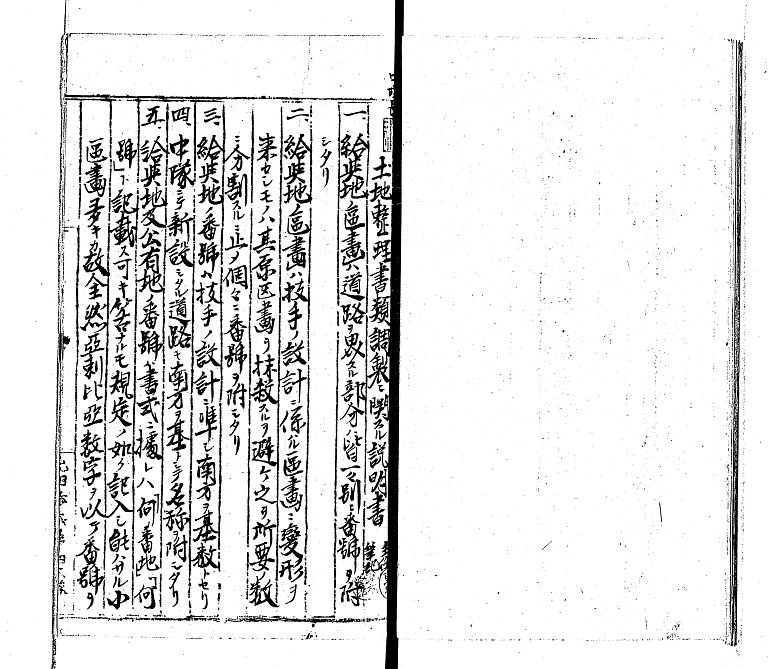 土地整理書類調製ニ関スル説明書
一、給与地區畫ハ道路ヲ界スル部分ハ皆一々別ニ番號ヲ附
シタリ
二、給与地ノ區畫ハ技手ノ設計ニ係ル區畫ニ變形ヲ
来セシモノハ其原区畫ヲ抹殺スルヲ避ケ之ヲ所要ノ数
ニ分割スルニ止メ個々ニ番號ヲ附シタリ
三、給与地ノ番號ハ技手ノ設計ニ準シ南方ヲ基数トセリ
四、中隊ニテ新設シタル道路モ南方ヲ基トシテ名称ヲ附シタリ
五、給与地及公有地ノ番號ハ書式ニ據レハ「何番地」「何
號」ト記載ス可キ筈ナルモ規定ノ如ク記入シ能ハサル小
區畫多キ故全然亞剌比亞数字ヲ以テ番號ヲ